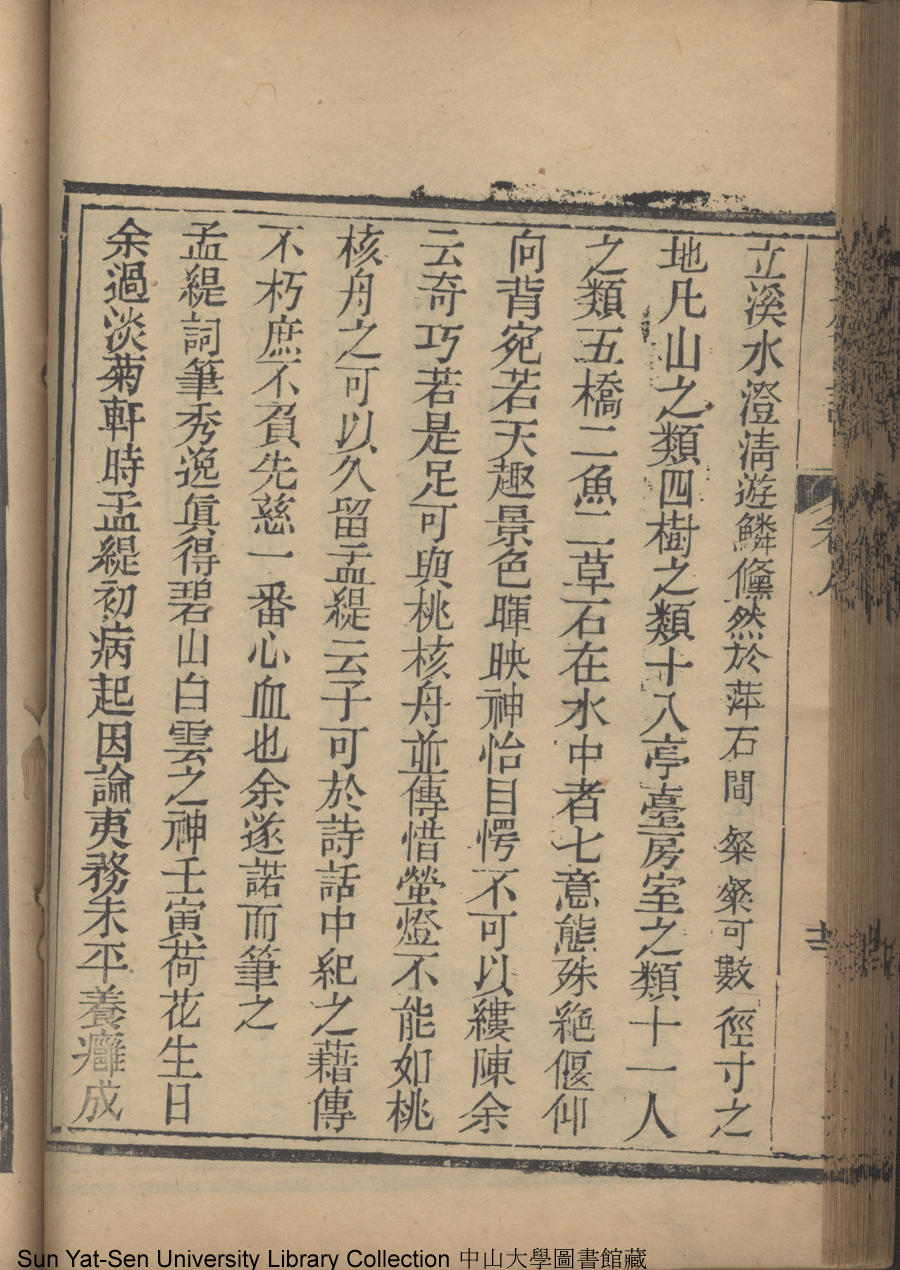 立溪水澄清遊鱗儵然於萍石間粲粲可數徑寸之
地凡山之類四樹之類十八亭臺房室之類十一人
之類五橋二魚二草石在水中者七意態殊絶偃仰
向背宛若天趣景色暉映神怡目愕不可以縷陳余
云奇巧若是足可與桃核舟並傳惜螢燈不能如桃
核舟之可以久留孟緹云子可於詩話中紀之藉傳
不朽庶不負先慈一番心血也余遂諾而筆之
孟緹詞筆秀逸眞得碧山白雲之神壬寅荷花生日
余過淡菊軒時孟緹初病起因論夷務未平養癰成
Sun Yat-Sen University Library Collection 中山大學圖書館藏